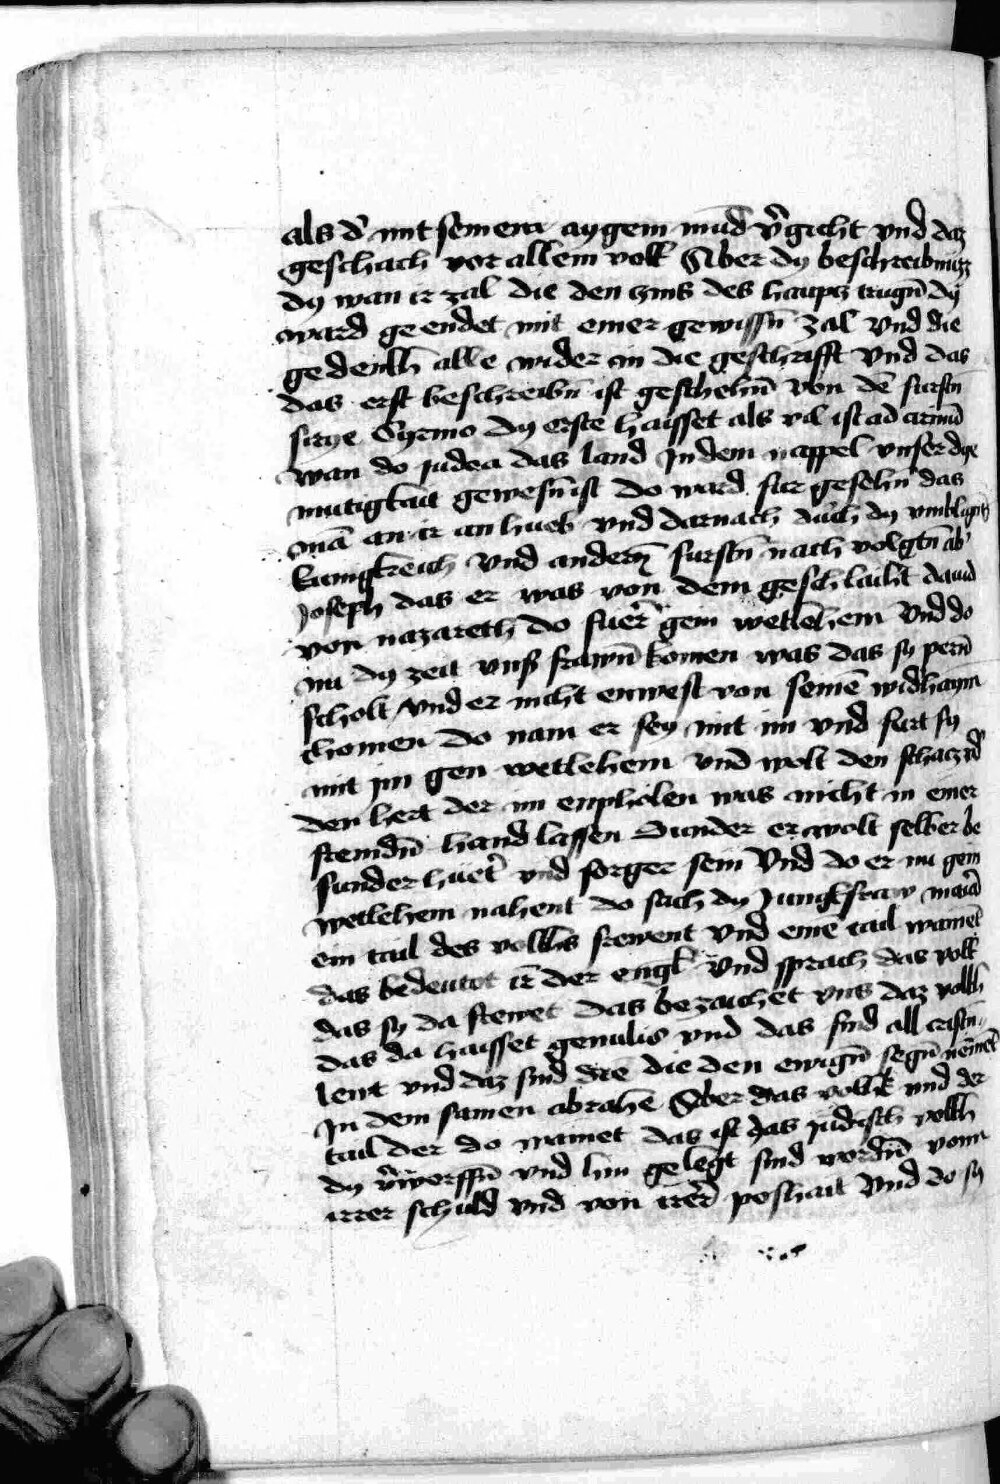 als d' mit seinem aygem mud v'gicht vnd daz
geschach vor allem volk Aber dy beschreibnuzz
dy wan ir zal die den zins des haupcz trugn̄ dy
ward geendet mit einer gewissn̄ zal vnd die
gedenkh alle wider in die geschrifft vnd das
das erst beschreibn̄ ist geschehn̄ von dē furstn̄
sirye Cyrino dy erste haisset als vil ist ad
wan do judea das land In dem nappel vnser
mutigkait gewesn̄ ist do ward fur gesehn̄ das
mā an ir an hueb vnd darnach durch dy
kunigkreich vnd anderen̄ furstn̄ nach volgtn̄ ab'
Joseph das er was von dem geschlächt dauid
von nazareth do fuer̄ gein wetlehem vnd do
nu dy zeit vnß frawn̄ komen was das sy pern̄
scholt vnd er nicht enwest von seinē widhaym
chomen do nam er sey mit im vnd furt sy
mit jm gen wetlehem vnd wolt den schacz
den hert der im enpholen was nicht in einer
fremdn̄ hand lassen Sunder er wolt selber be
sunder hueter̄ vnd sorger sein vnd do er nu gein
wetlehem nahent do sach dy Junckfraw maria
ein tail des volkhs frewent vnd eine tail wainēt
das bedeutot ir̄ der engl vnd sprach das volk
das sy da frewet das bezaichet vns daz volkh
das da haisset gentilis vnd das sind all cristn̄
lewt vnd daz sind die die den ewign̄ segn̄ nēment
In dem samen abrahē Aber das volkk vnd der
tail der do wainet das ist das judisch volkh
dy v'worffn̄ vnd hin gelegt sind wordn̄ von
irrer schuld vnd von irer̄ poshait vnd do sy